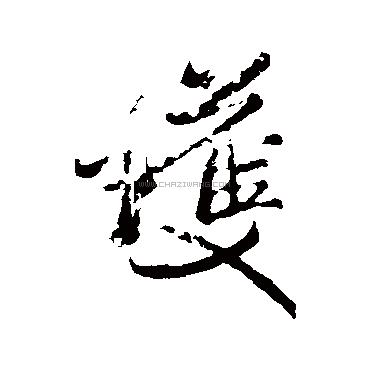 穫
WWW.CHAZIWANG.COM